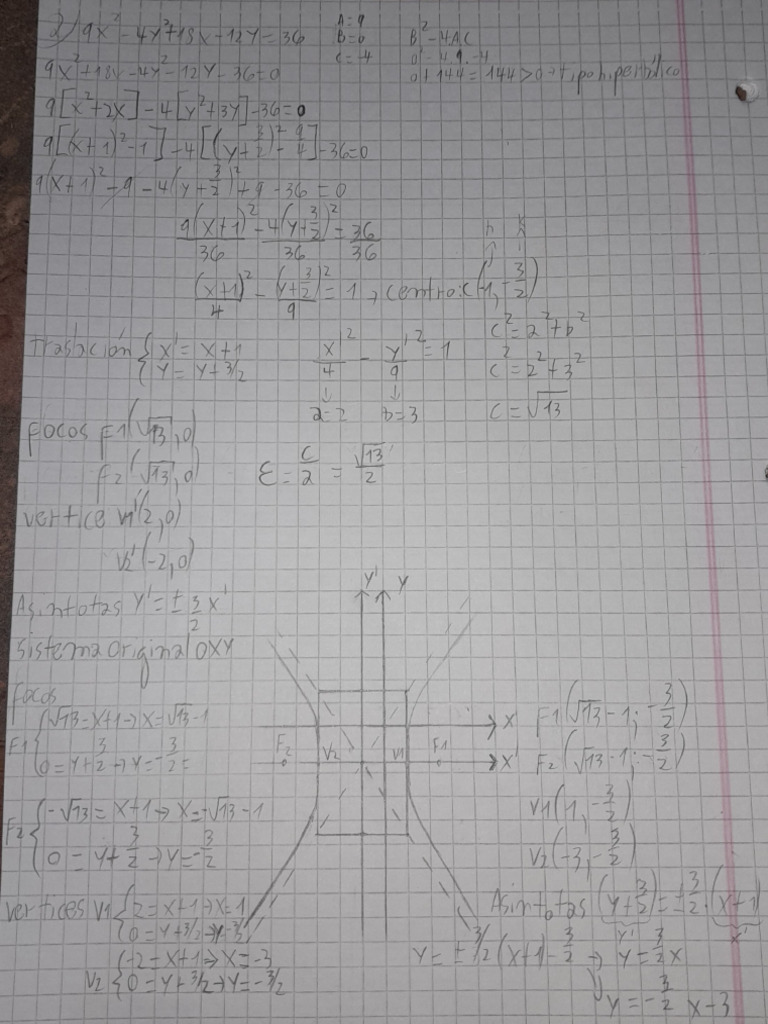 2) 9x² - 4y² + 18x - 12y = 36
A = 9
B = 0
C = -4
B² - 4.A.C
0² - 4.9.-4
0 + 144 = 144 > 0 → tipo hiperbólico
9x² + 18x - 4y² - 12y - 36 = 0
9[x² + 2x] - 4[y² + 3y] - 36 = 0
9[(x+1)² - 1] - 4[(y + 3/2)² - 9/4] - 36 = 0
9(x+1)² - 9 - 4(y + 3/2)² + 9 - 36 = 0
9(x+1)²/36 - 4(y + 3/2)²/36 = 36/36
h k
(x+1)²/4 - (y + 3/2)²/9 = 1, centro: c(-1, -3/2)
Traslación { x' = x+1
{ y = y + 3/2
x'²/4 - y'²/9 = 1
↓ ↓
a=2 b=3
c² = a² + b²
c² = 2² + 3²
c = √13
Focos F1'(√13, 0)
F2'(√13, 0)
ε = c/2 = √13/2
vertice v1'(2, 0)
v2'(-2, 0)
Asintotas y' = ± 3/2 x'
sistema original OXY
Focos
F1 { √13 = x+1 → x = √13 - 1
{ 0 = y + 3/2 → y = -3/2 =
F2 { -√13 = x+1 → x = -√13 - 1
{ 0 = y + 3/2 → y = -3/2
vertices v1 { 2 = x+1 → x = 1
{ 0 = y + 3/2 → y = -3/2
v2 { -2 = x+1 → x = -3
{ 0 = y + 3/2 → y = -3/2
y' y
x
F2 v2 v1 F1
x'
F1(√13 - 1; -3/2)
F2(√13 - 1; -3/2)
v1(1, -3/2)
v2(-3, -3/2)
Asintotas (y + 3/2) = ± 3/2 . (x+1)
y' x'
y = ± 3/2 (x+1) - 3/2 → y = 3/2 x
y = -3/2 x - 3